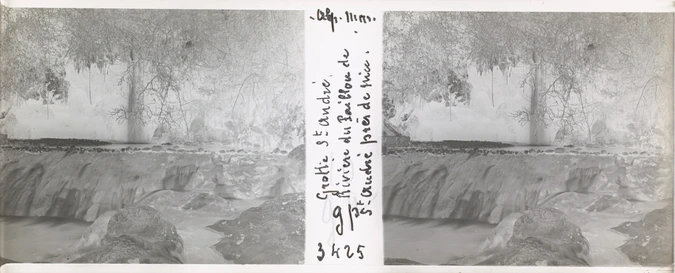 Alp. Mar.
Grotte St André.
Rivière du Paillon de
St André près de Nice.
3425